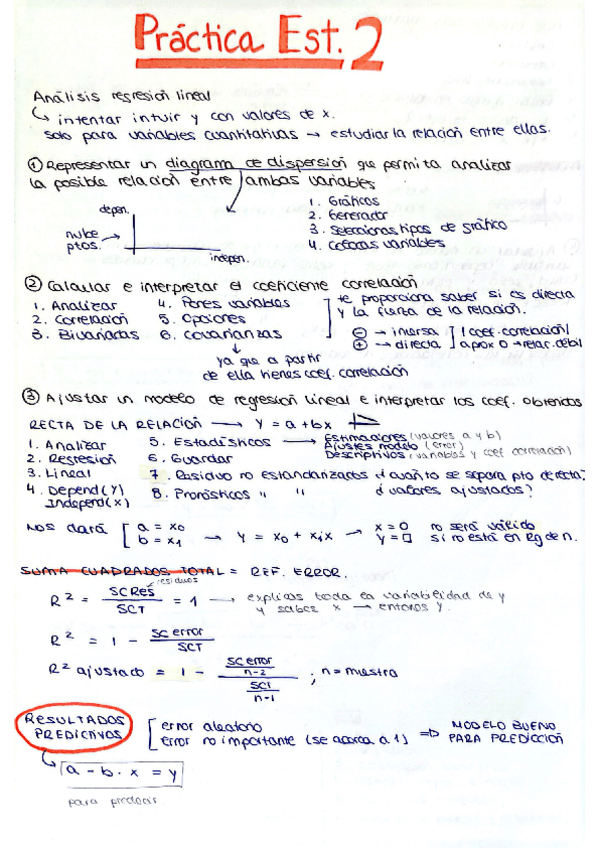 Práctica Est. 2
Análisis regresión lineal
↳ intentar intuir y con valores de x.
solo para variables cuantitativas → estudiar la relación entre ellas.
① Representar un diagrama de dispersión que permita analizar
la posible relación entre ambas variables
depen.
nube ptos. →
indepen.
1. Gráficos
2. Generador
3. Seleccionas tipos de gráfico
4. Colocas variables
② Calcular e interpretar el coeficiente correlación
1. Analizar
2. Correlación
3. Bivariadas
4. Pones variables
5. Opciones
6. Covarianzas
↓
ya que a partir
de ella tienes coef. correlación
te proporciona saber si es directa
y la fuerza de la relación.
⊖ → inversa
⊕ → directa
| coef. correlación |
aprox 0 → relac. débil
③ Ajustar un modelo de regresión lineal e interpretar los coef. obtenidos
RECTA DE LA RELACIÓN → y = a + bx
1. Analizar
2. Regresión
3. Lineal
4. Depend (Y)
Independ (X)
5. Estadísticos → Estimaciones (valores a y b)
Ajustes modelo (error)
Descriptivos (variables y coef correlación)
6. Guardar
7. Residuo no estandarizados ¿cuánto se separa pto de recta?
8. Pronósticos " " ¿valores ajustados?
Nos dará [ a = x0
b = x1 → y = x0 + x1x → x = 0
y = □
no será válido
si no está en Rg de n.
SUMA CUADRADOS TOTAL = REF. ERROR.
residuos
R² = SCRes / SCT = 1 → explicas toda la variabilidad de y
y sabes x → entonces y.
R² = 1 - SCerror / SCT
R² ajustado = 1 - (SCerror / n-2) / (SCT / n-1) ; n = muestra
RESULTADOS PREDICTIVOS
[ error aleatorio
error no importante (se acerca a 1) ⇒ MODELO BUENO
PARA PREDICCIÓN
↳ a - b · x = y
para predecir.